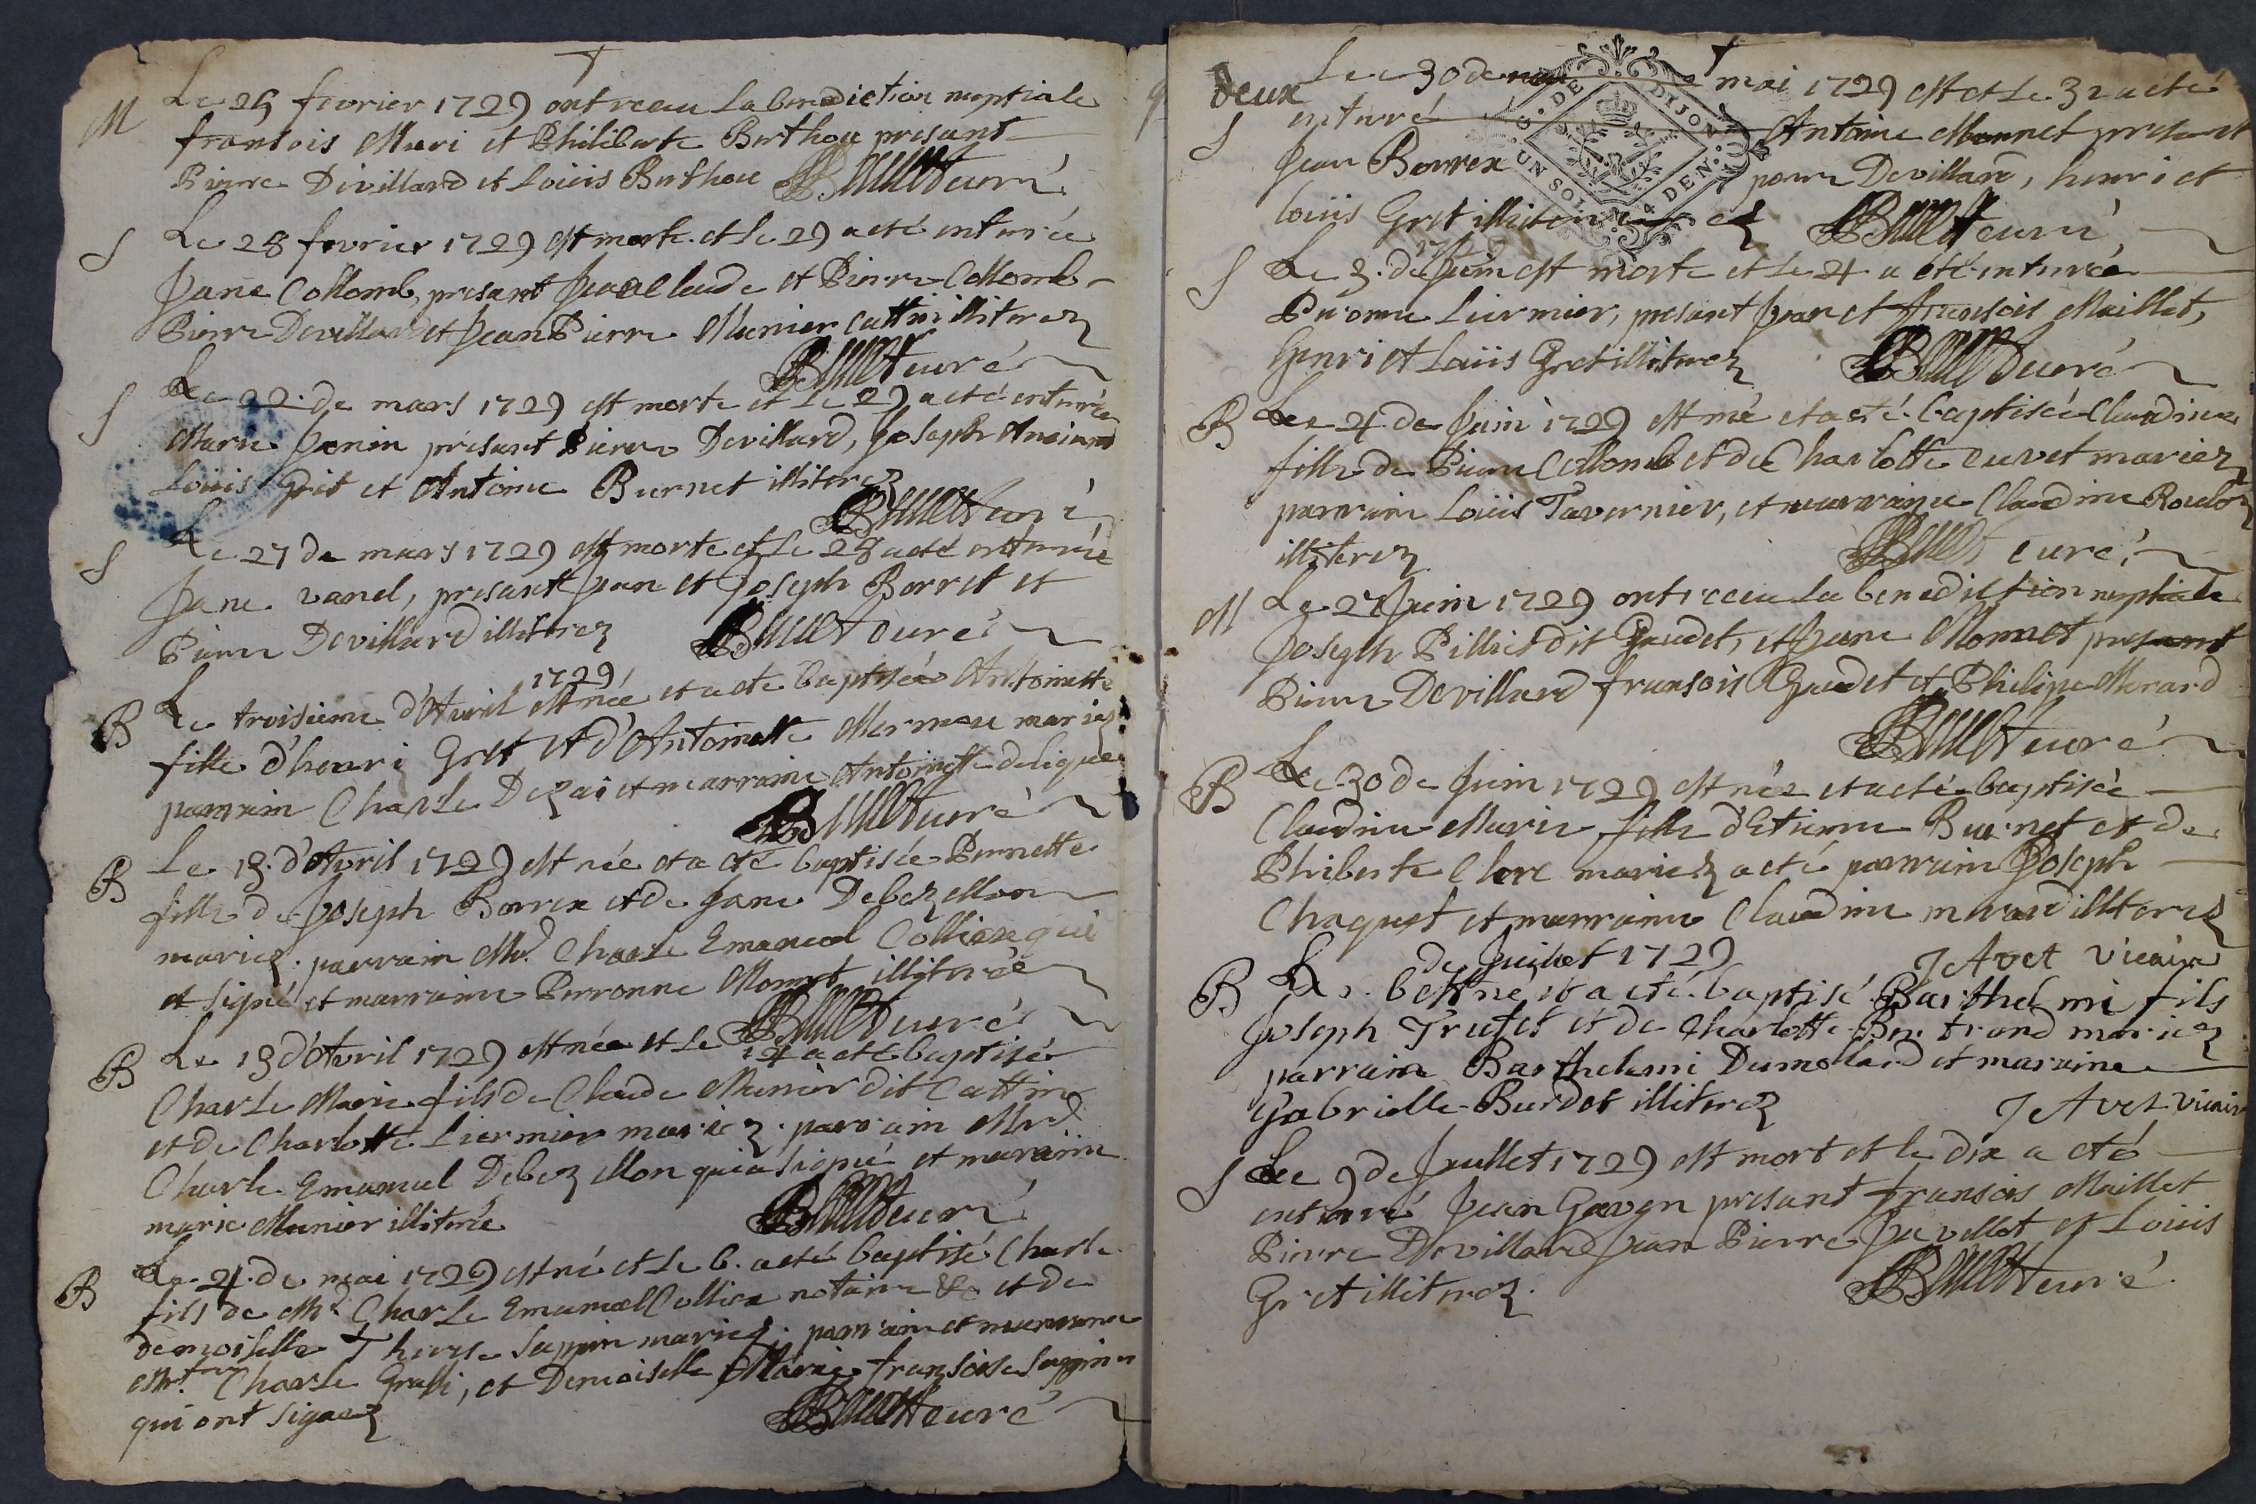 M
Le 25 fevrier 1729 ont receu la benediction nuptiale
fransois Muri et Philiberte Berthou presant
Pierre Devillard et Loüis Berthou curé
S
Le 28 fevrier 1729 est morte et le 29 a eté enterrée
Jane Collomb, presant Jean Claude et Pierre Collomb
Pierre Devillard et Jean Pierre Munier Cattin illiterez
curé
S
Le 22. de mars 1729 est morte et le 29 a eté enterrée
Marie presant Pierre Devillard, Joseph
Loüis Gret et Antoine Burnet illiterez
curé
S
Le 27 de mars 1729 est morte et le 28 a eté enterrée
Jane vanel, presant Jean et Joseph Borret et
Pierre Devillard illiterez curé
B
1729
Le troisieme d'Avril est née et a eté baptisée Antoinette
fille d'henri Gret et d'Antoinette mariez
parrain Charle Dezai et marraine Antoinette
curé
B
Le 13. d'Avril 1729 est née et a eté baptisée Pernette
fille de Joseph Borrex et de Jane Debezellon
mariez. parrain Mr. Charle Emanuel Colliex qui
et signé et marraine Perronne Monnet illiterée
curé
B
Le 13 d'Avril 1729 est née et le 14 a eté baptisée
Charle Marie fils de Claude Munier dit Cattin
et de Charlotte Liermier mariez. parrain Mr
Charle Emanuel Debezellon qui a signé et maraine
marie Munier illiterée curé
B
Le 4. de mai 1729 est né et le 6. a eté baptisé Charle
fils de Mr Charle Emanuel Colliex notaire &c et de
demoiselle Therese Sappin mariez. parrain et marraine
Charle et Demoiselle Marie fransoise Sappin
qui ont signez curé
deux
S
Le 30 de mai 1729 est et le 31 a eté
enterré Antoine Monnet presant
Jean Borrex Devillard, henri et
loüis Gret illiterez curé
DE DIJON
UN SOL 4 DEN.
S
1729
Le 3. de Juin est morte et le 4 a eté enterrée
Peronne Liermier, presant Jean et fransois Maillet,
henri et Loüis Gret illiterez curé
B
Le 4 de Juin 1729 est née et a eté baptisée Claudine
fille de Pierre Collomb et de Charlotte Cuvet mariez
parrain Loüis Tavernier, et marraine Claudine
illiterez curé
M
Le 27 Juin 1729 ont receu la benediction nuptiale
Joseph Pilliet dit Gaudet, et Jane Monnet presant
Pierre Devillard fransois Gaudet et Philipe Morard
curé
B
Le 30 de Juin 1729 est née et a eté baptisée
Claudine Marie fille d'Etienne Burnet et de
Phiberte Clere mariez a eté parrain Joseph
Chaquet et marraine Claudine illiterez
J Avet vicaire
B
de Juillet 1729
Le est né et a eté baptisé Barthelmi fils
Joseph Trufet et de Charlotte Bertrand mariez
parrain Barthelemi Dumollard et maraine
Gabrielle Burdet illiterez J Avet vicair
S
Le 9 de Juillet 1729 est mort et le dix a eté
enterré Jean Gaven presant fransois Maillet
Pierre Devillard Jean Pierre Juvellet et Loüis
Gret illiterez. curé